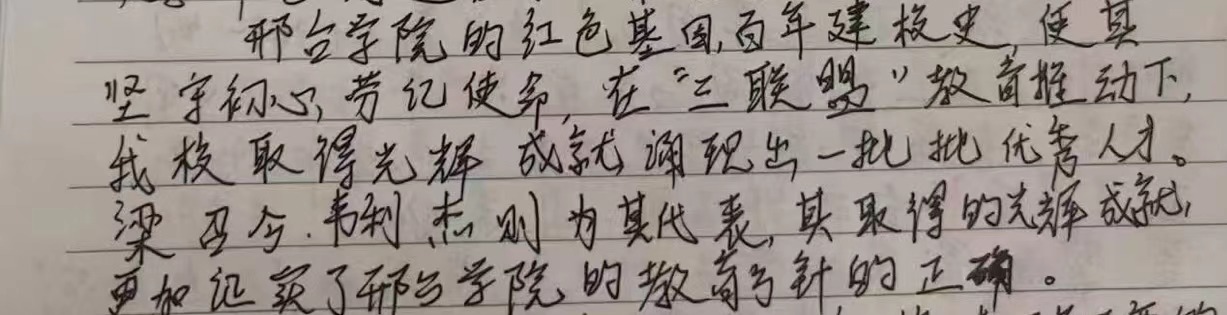 邢台学院的红色基因,百年建校史,使其
坚守初心,劳记使命,在“三联盟”教育推动下,
我校取得光辉成就,涌现出一批批优秀人才。
梁召今.韦利杰则为其代表,其取得的光辉成就,
更加证实了邢台学院的教育方针的正确。